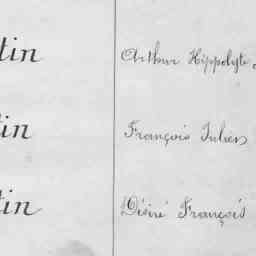 tin Arthur Hippolyte
tin François Julien
tin Désiré François